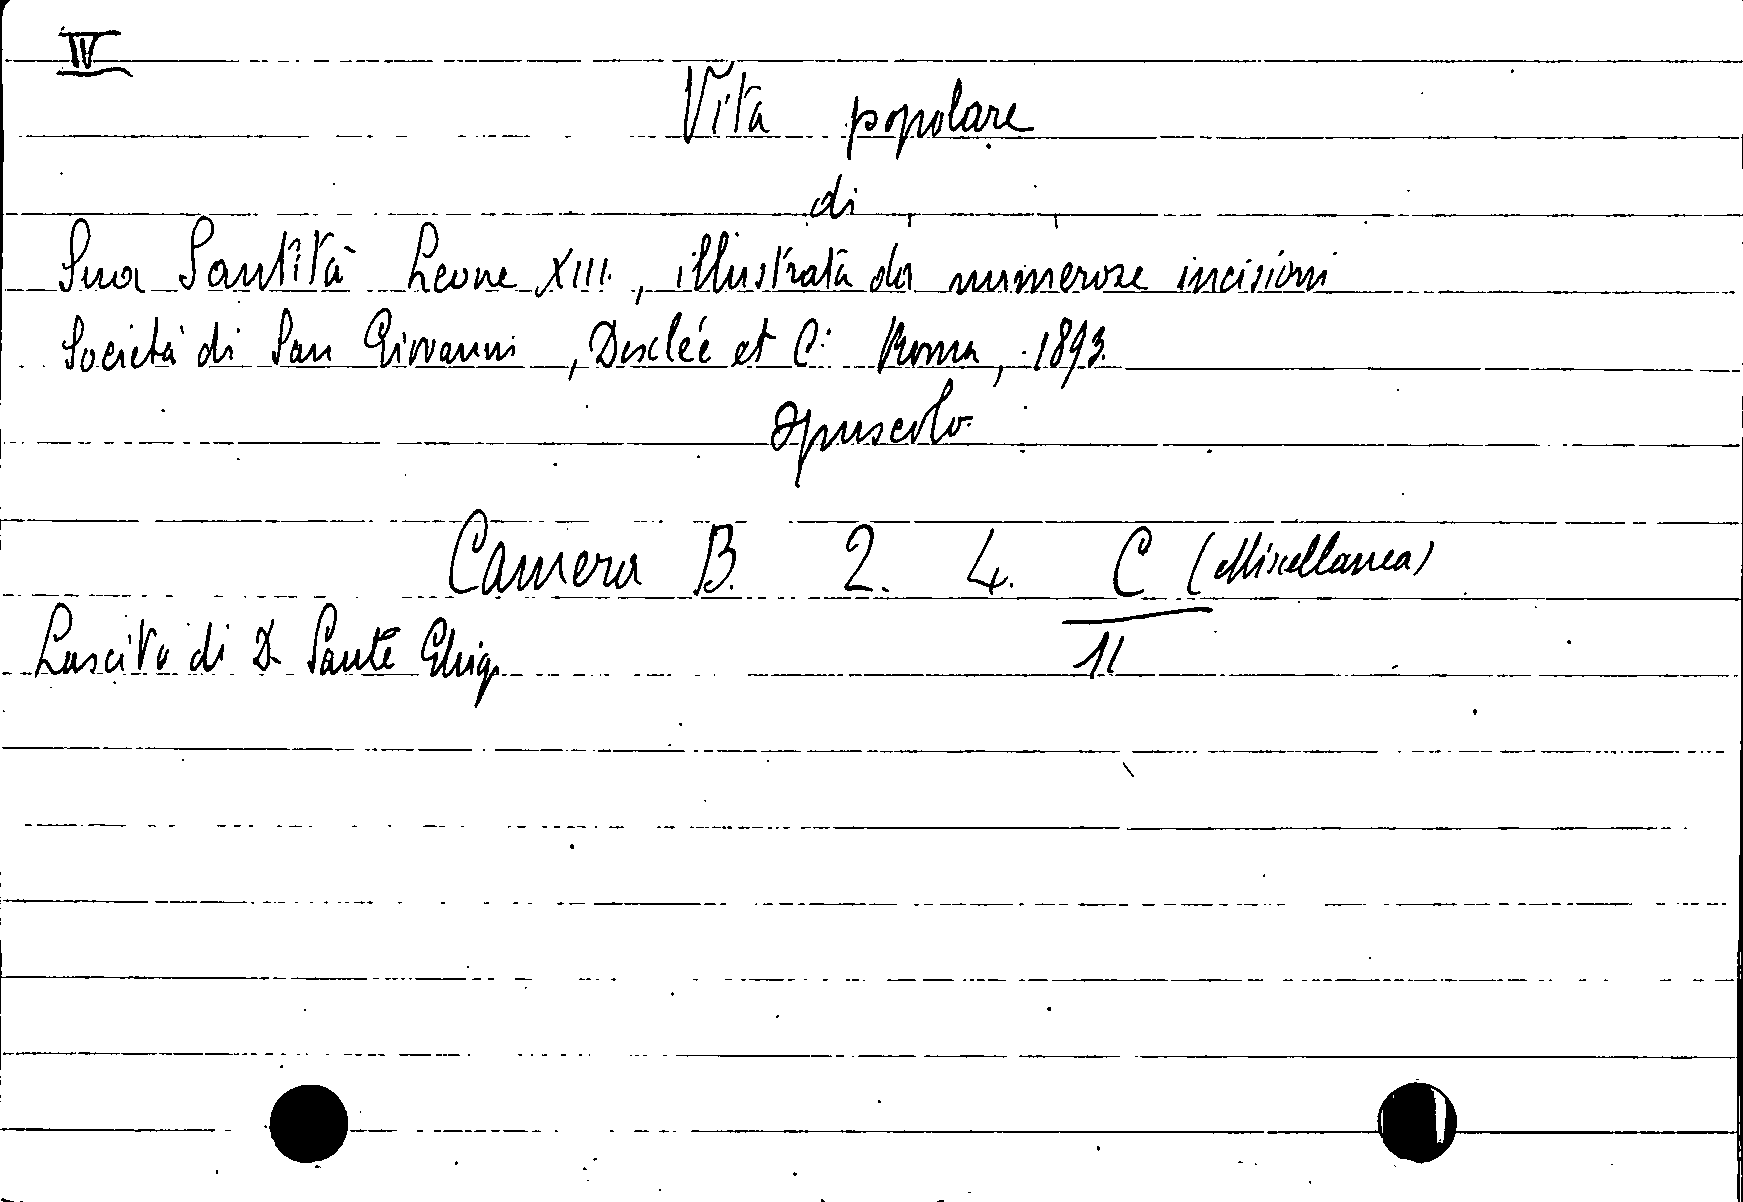 IV
Vita popolare
di
Sua Santità Leone XIII., illustrata da numerose incisioni
Società di San Giovanni, Desclée et C. Roma, 1893.
opuscolo
Camera B. 2. 4. C (Miscellanea)
11
Lascito di D. Sante